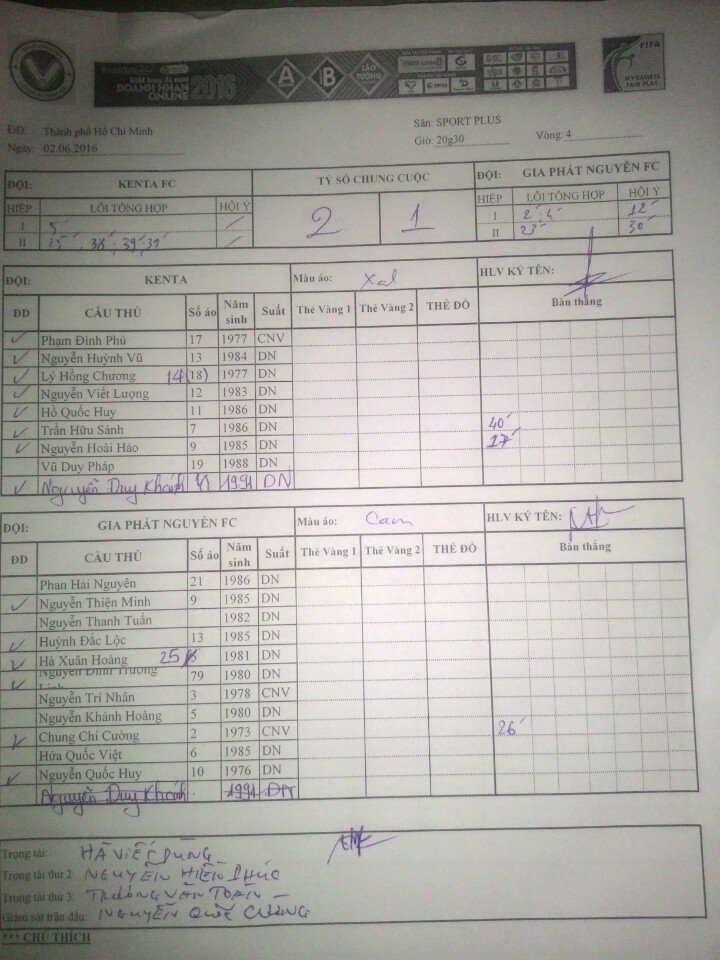 FIFA
MY GAME IS
FAIR PLAY
DOANH NHAN
ONLINE 2016
A B
ĐĐ: Thành phố Hồ Chí Minh
Sân: SPORT PLUS
Ngày: 02.06.2016
Giờ: 20g30 Vòng: 4
ĐỘI: KENTA FC TỶ SỐ CHUNG CUỘC ĐỘI: GIA PHÁT NGUYỄN FC
HIỆP LỖI TỔNG HỢP HỘI Ý 2 1 HIỆP LỖI TỔNG HỢP HỘI Ý
I 5' / I 2' 4' 12'
II 25', 38', 39', 39' / II 23' 30'
ĐỘI: KENTA Màu áo: HLV KÝ TÊN:
ĐD CẦU THỦ Số áo Năm sinh Suất Thẻ Vàng 1 Thẻ Vàng 2 THẺ ĐỎ Bàn thắng
✓ Phạm Đình Phú 17 1977 CNV
✓ Nguyễn Huỳnh Vũ 13 1984 DN
✓ Lý Hồng Chương 14 (18) 1977 DN
✓ Nguyễn Viết Lượng 12 1983 DN
✓ Hồ Quốc Huy 11 1986 DN
✓ Trần Hữu Sánh 7 1986 DN 40'
✓ Nguyễn Hoài Hảo 9 1985 DN 17'
Vũ Duy Pháp 19 1988 DN
✓ Nguyễn Duy Khánh 1991 DN
ĐỘI: GIA PHÁT NGUYỄN FC Màu áo: Cam HLV KÝ TÊN:
ĐD CẦU THỦ Số áo Năm sinh Suất Thẻ Vàng 1 Thẻ Vàng 2 THẺ ĐỎ Bàn thắng
Phan Hai Nguyên 21 1986 DN
✓ Nguyễn Thiện Minh 9 1985 DN
Nguyễn Thanh Tuấn 1982 DN
✓ Huỳnh Đắc Lộc 13 1985 DN
✓ Hà Xuân Hoàng 25 1981 DN
✓ Nguyễn Đình Trường 79 1980 DN
Nguyễn Trí Nhân 3 1978 CNV
Nguyễn Khánh Hoàng 5 1980 DN
✓ Chung Chí Cường 2 1973 CNV 26'
Hứa Quốc Việt 6 1985 DN
✓ Nguyễn Quốc Huy 10 1976 DN
Nguyễn Duy Khánh 1991
Trọng tài: HÀ VIẾT DŨNG
Trọng tài thứ 2: NGUYỄN HIỀN PHÚC
Trọng tài thứ 3: TRƯƠNG VĂN TOÀN
Giám sát trận đấu: NGUYỄN QUỐC CƯỜNG
*** CHÚ THÍCH